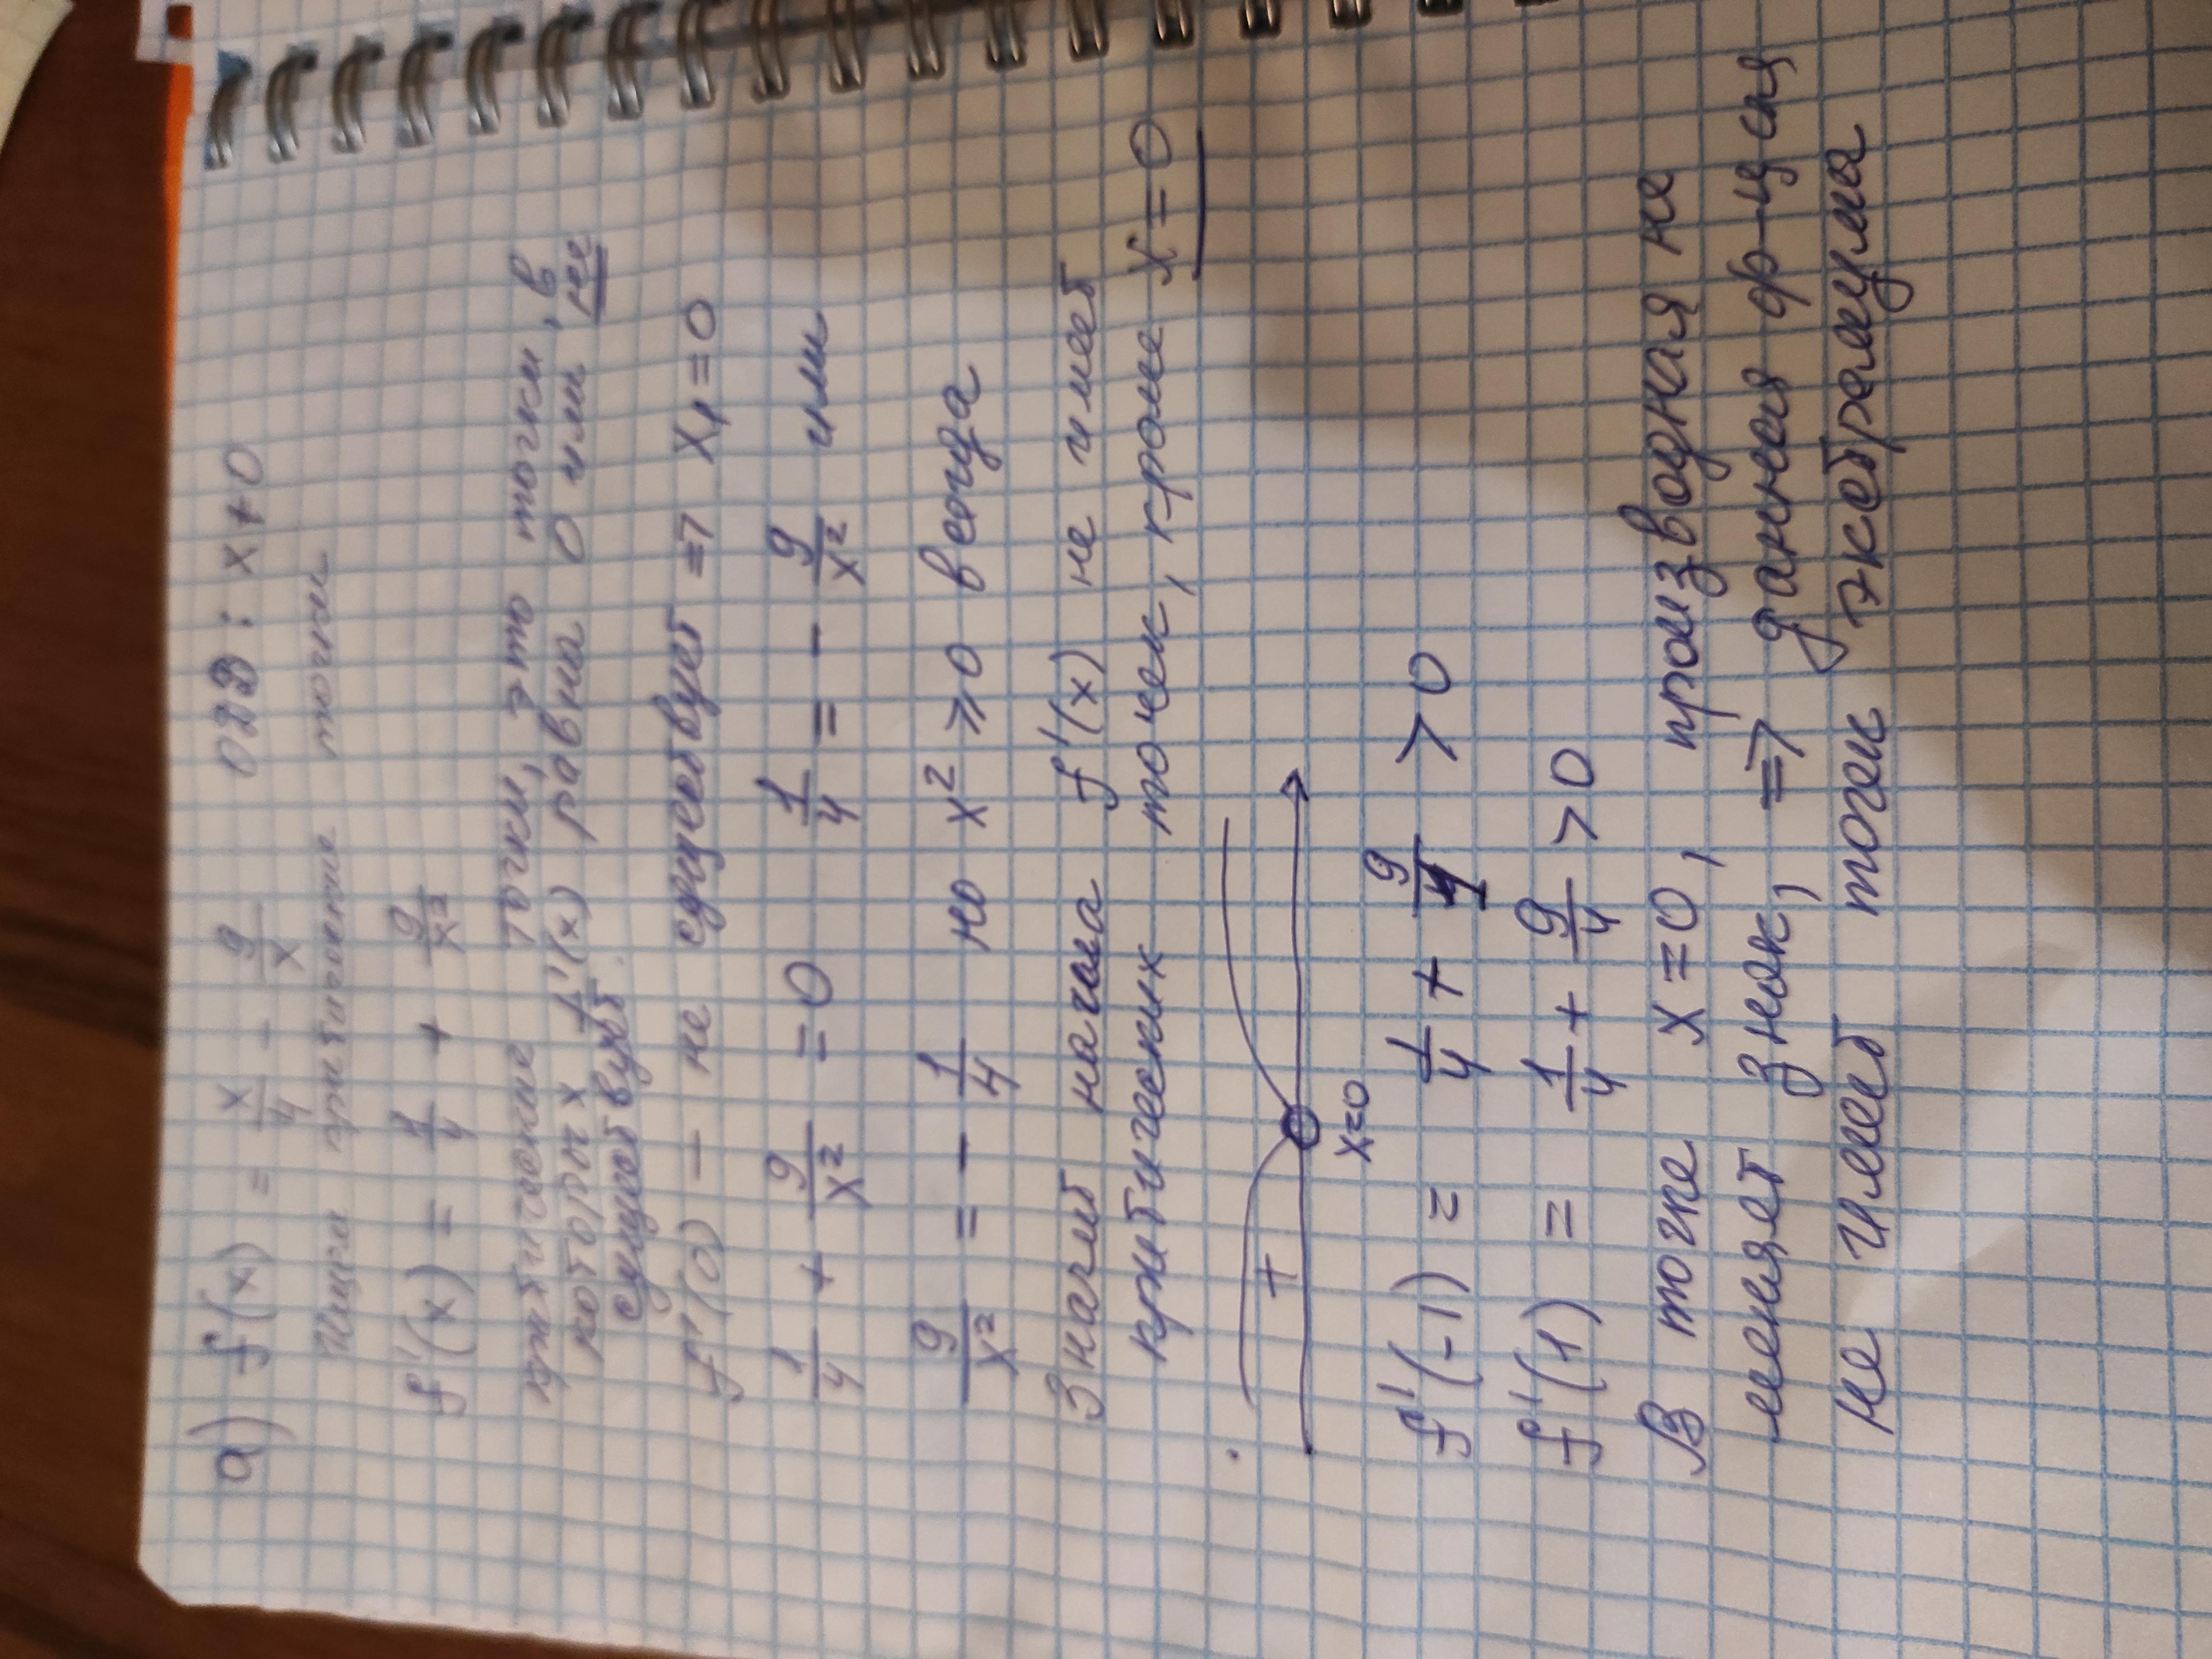 а) f(x) = x/4 - 9/x   ОДЗ: x≠0
Ищем критические точки
f'(x) = 1/4 + 9/x²
критические точки, это точки, в
которых f'(x) равна 0 или не
существует.
f'(0) – не существует => x₁=0
1/4 + 9/x² = 0   1/4 = - 9/x² или
9/x² = - 1/4   но x² ⩾ 0 всегда
Значит начала f'(x) не имеет
критических точек, кроме x=0
+
x=0
f'(-1) = 1/4 + 9/4 > 0
f'(1) = 1/4 + 9/4 > 0
В точке x=0, производная не
меняет знак, => данная ф-ция
не имеет точек экстремума